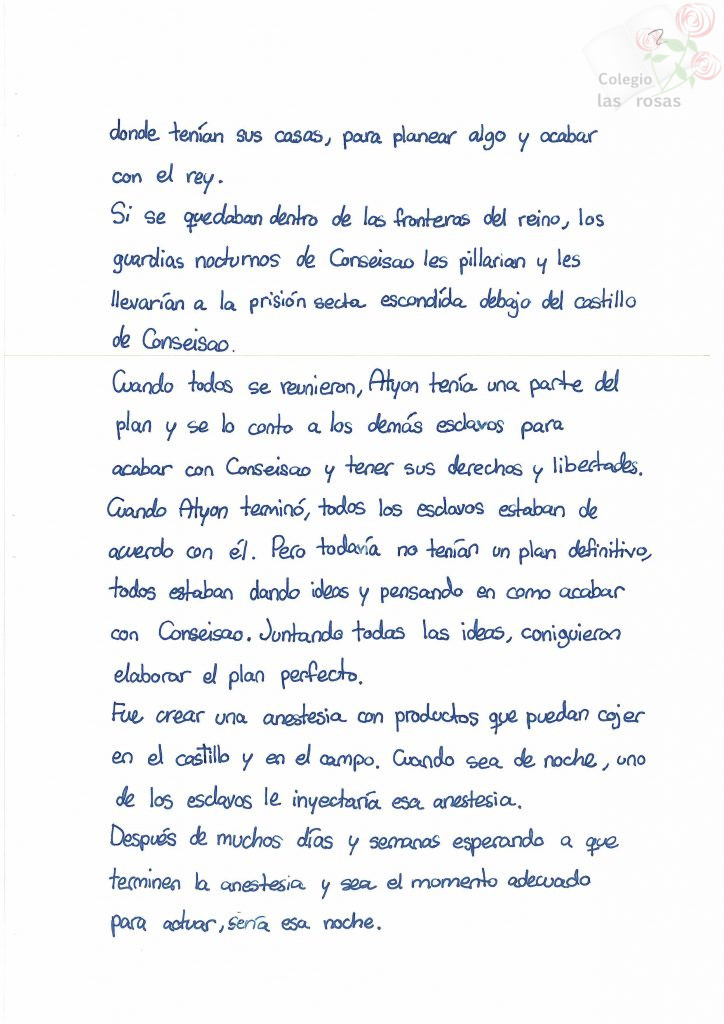 2
Colegio
las rosas
donde tenían sus casas, para planear algo y acabar
con el rey.
Si se quedaban dentro de las fronteras del reino, los
guardias nocturnos de Conseisao les pillarian y les
llevarían a la prisión secta escondída debajo del castillo
de Conseisao.
Cuando todos se reunieron, Atyon tenía una parte del
plan y se lo conto a los demás esclavos para
acabar con Conseisao y tener sus derechos y libertades.
Cuando Atyon terminó, todos los esclavos estaban de
acuerdo con él. Pero todavía no tenían un plan definitivo,
todos estaban dando ideas y pensando en como acabar
con Conseisao. Juntando todas las ideas, coniguieron
elaborar el plan perfecto.
Fue crear una anestesia con productos que puedan cojer
en el castillo y en el campo. Cuando sea de noche, uno
de los esclavos le inyectaría esa anestesia.
Después de muchos días y semanas esperando a que
terminen la anestesia y sea el momento adecuado
para actuar, sería esa noche.